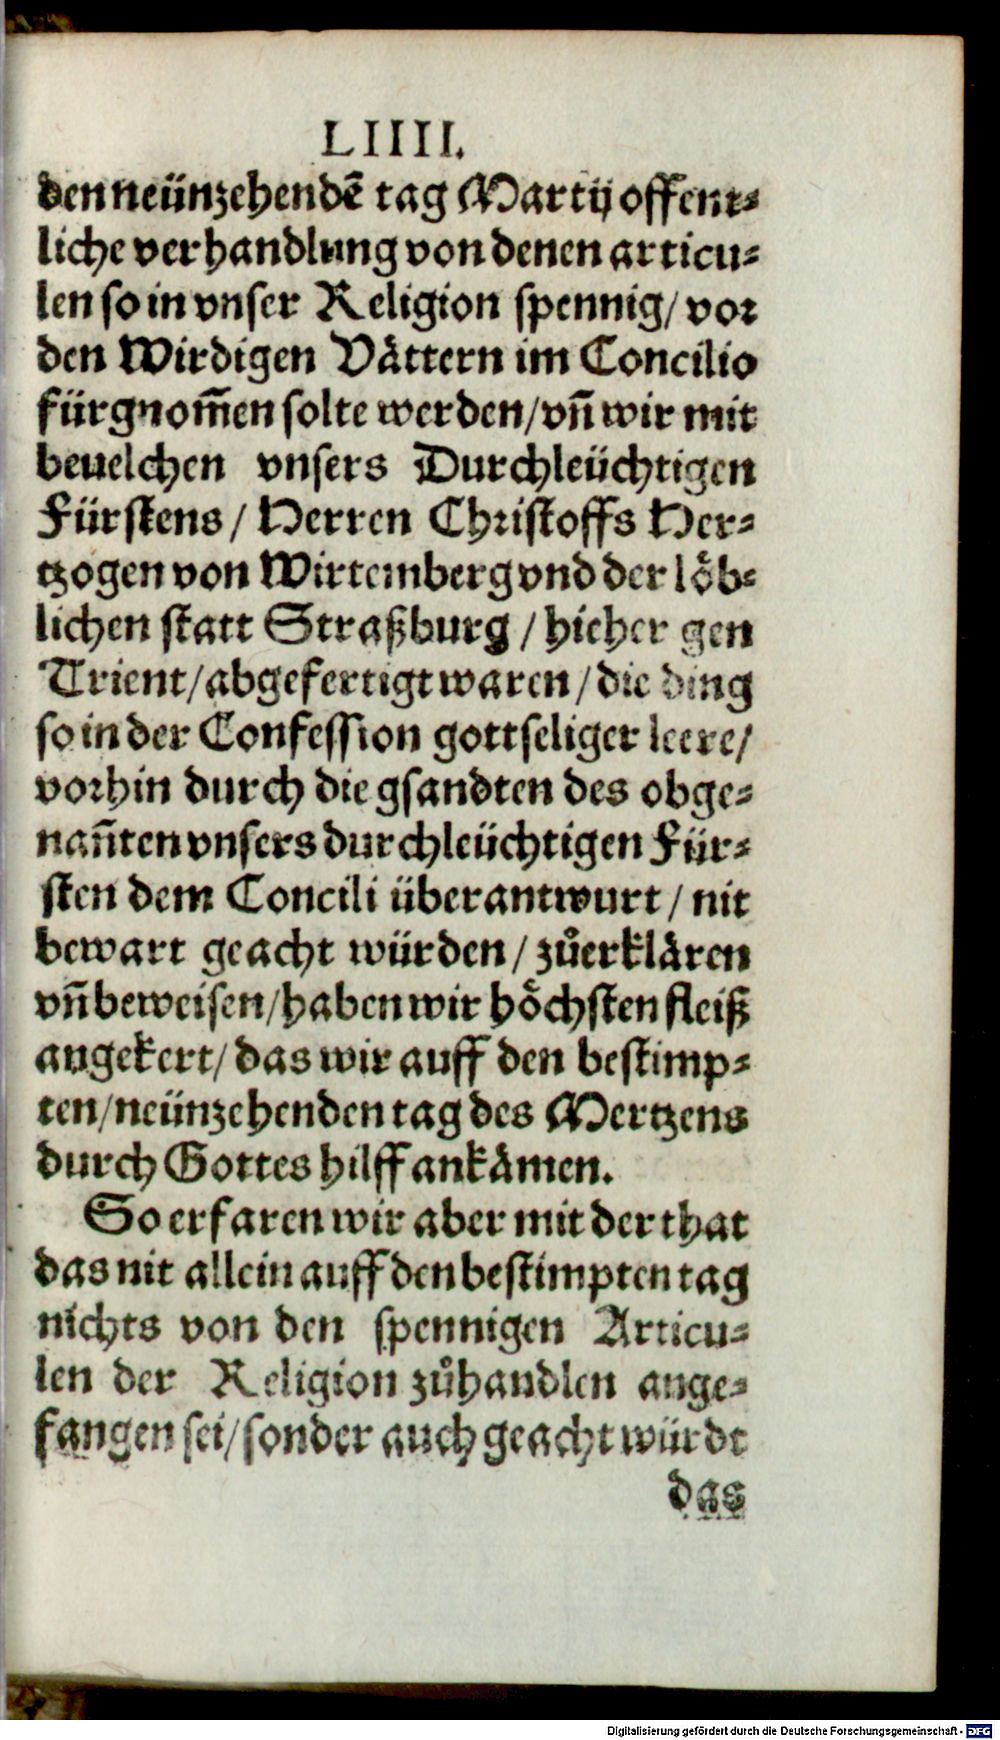 LIIII.
den neünzehendẽ tag Martij offent⸗
liche verhandlung von denen articu⸗
len so in vnser Religion spennig/ vor
den Wirdigen Vättern im Concilio
fürgnom̃en solte werden/ vñ wir mit
beuelchen vnsers Durchleüchtigen
Fürstens/ Herren Christoffs Her⸗
tzogen von Wirtemberg vnd der löb⸗
lichen statt Straßburg/ hieher gen
Trient/ abgefertigt waren/ die ding
so in der Confession gottseliger leere/
vorhin durch die gsandten des obge⸗
nañten vnsers durchleüchtigen Für⸗
sten dem Concili überantwurt/ nit
bewart geacht würden/ zůerklären
vñ beweisen/ haben wir höchsten fleiß
angekert/ das wir auff den bestimp⸗
ten/ neünzehenden tag des Mertzens
durch Gottes hilff ankämen.
So erfaren wir aber mit der that
das nit allein auff den bestimpten tag
nichts von den spennigen Articu⸗
len der Religion zůhandlen ange⸗
fangen sei/ sonder auch geacht würdt
das
Digitalisierung gefördert durch die Deutsche Forschungsgemeinschaft - DFG